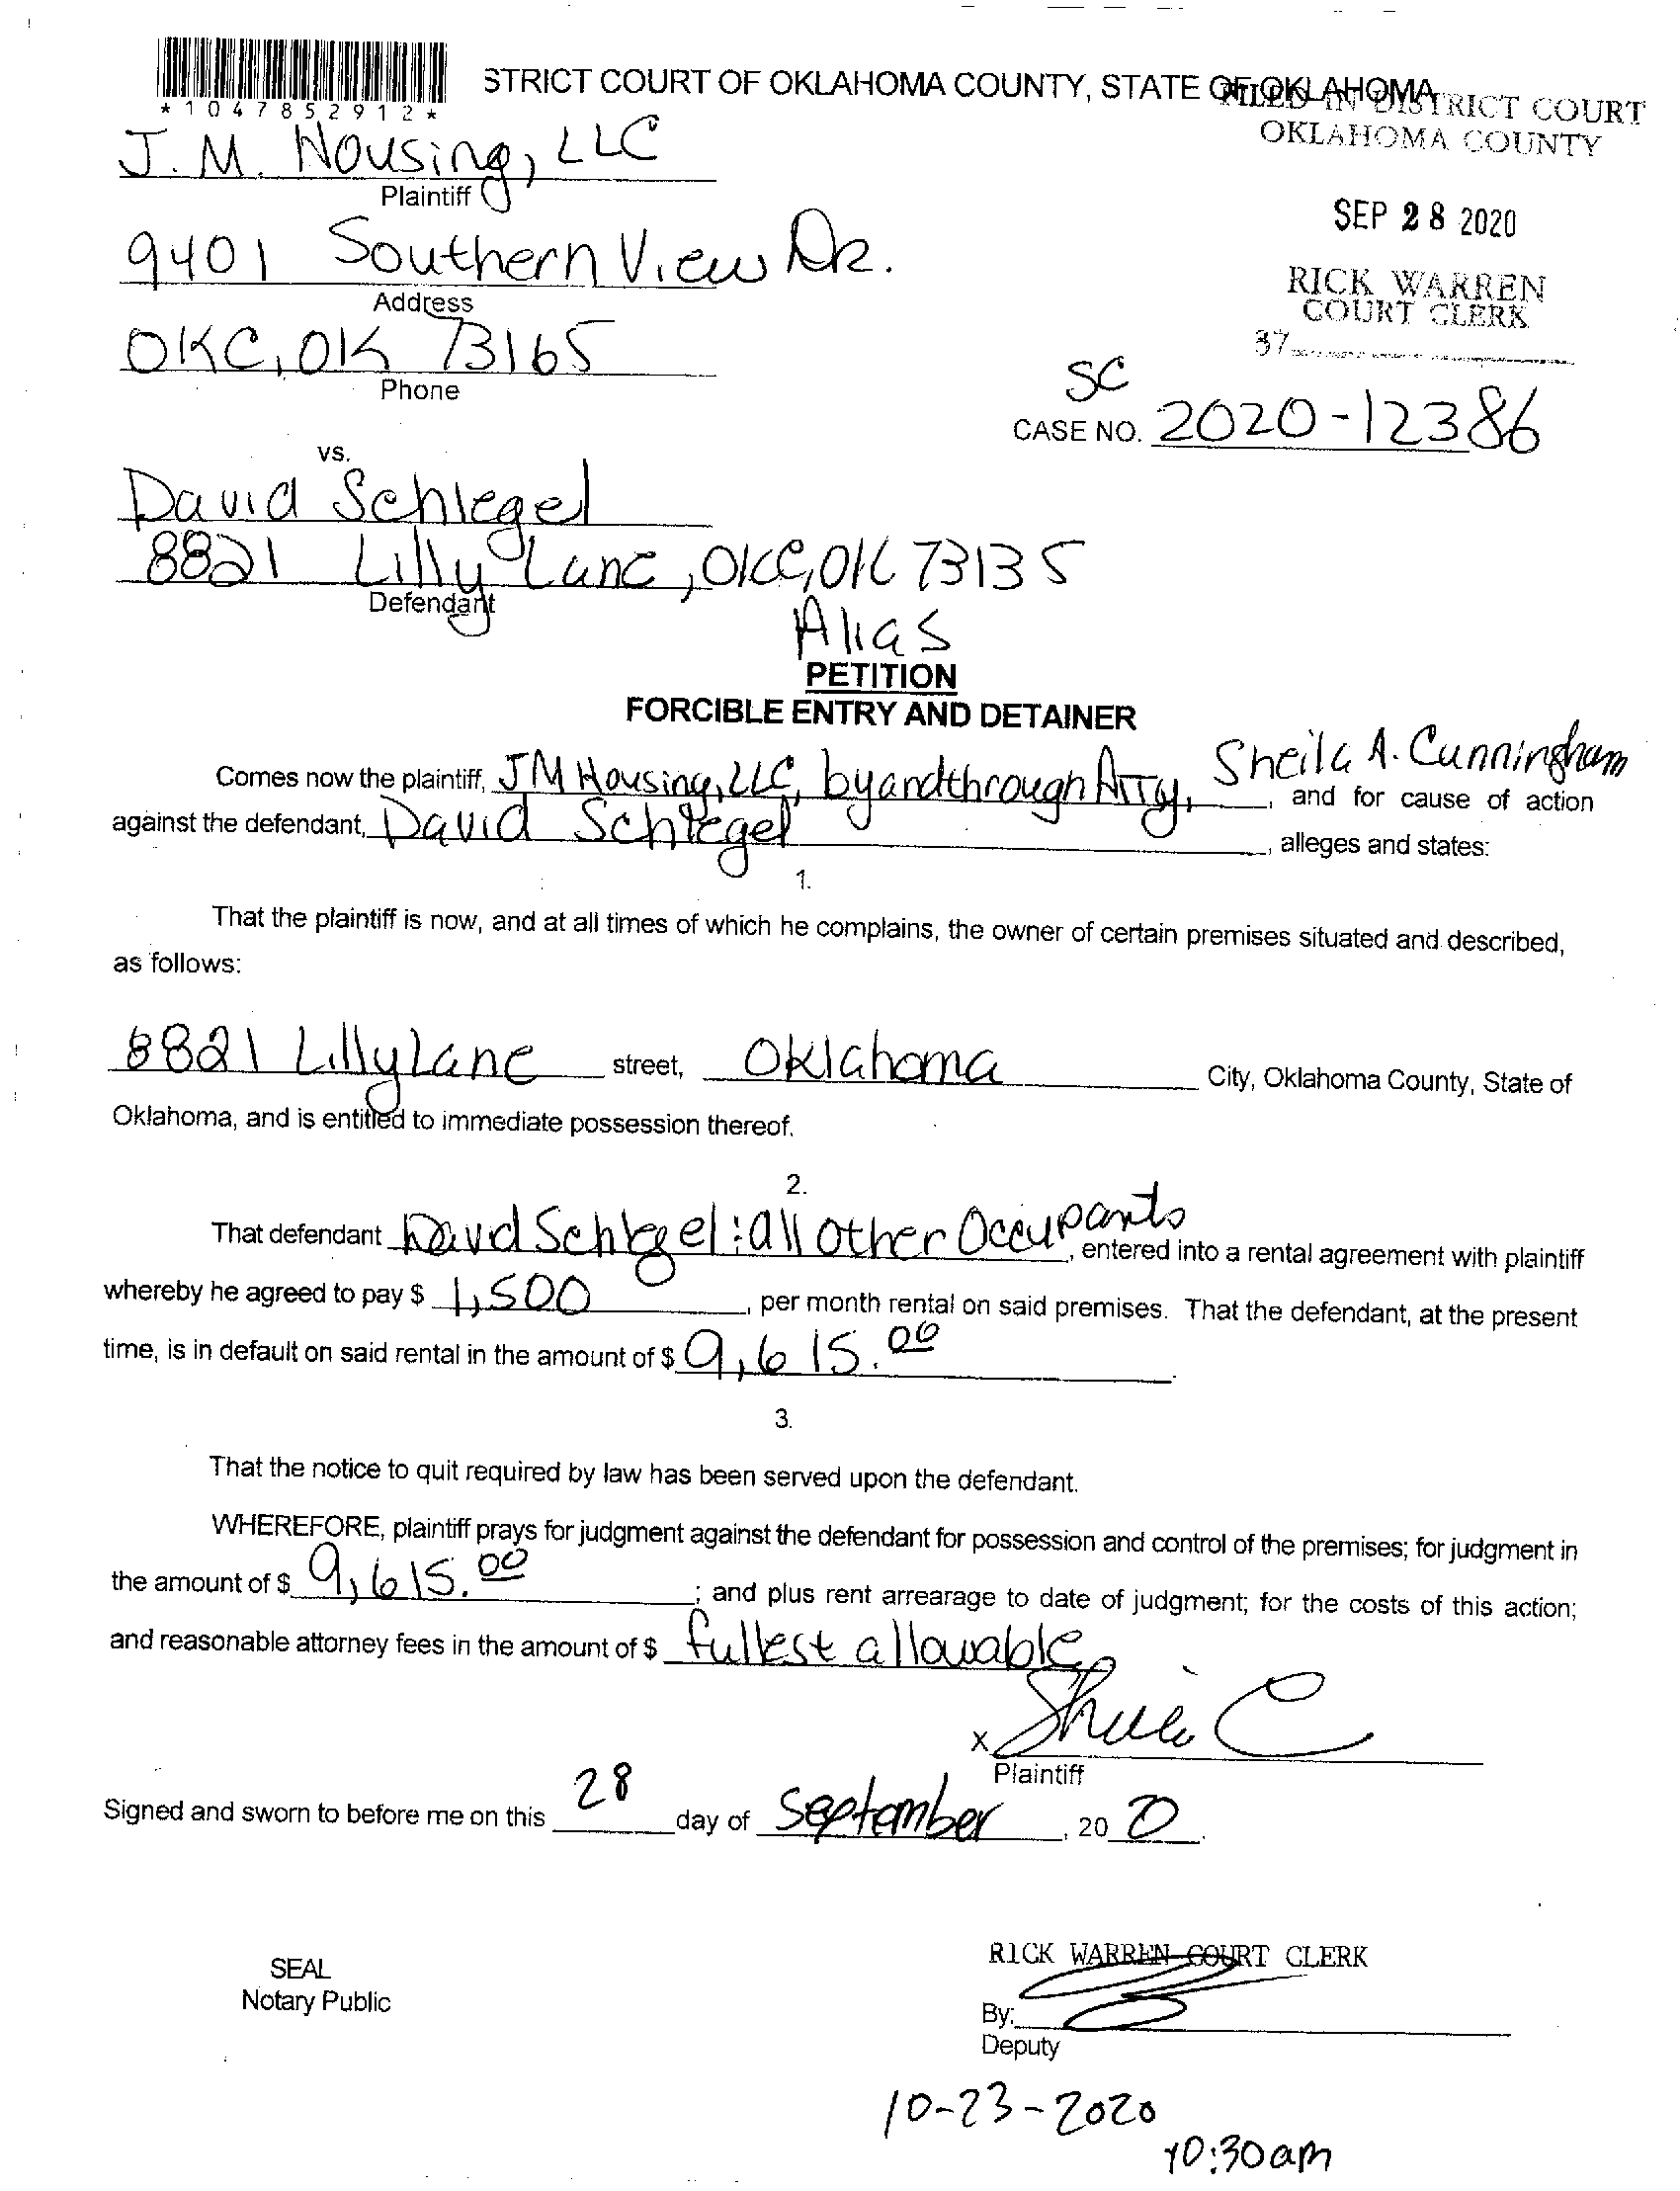 STRICT COURT OF OKLAHOMA COUNTY, STATE OF OKLAHOMA
*1047852912*
FILED IN DISTRICT COURT
OKLAHOMA COUNTY
J.M. Housing, LLC
Plaintiff
SEP 28 2020
9401 Southern View Dr.
Address
RICK WARREN
COURT CLERK
37
OKC, OK 73165
Phone
SC
CASE NO. 2020-12386
vs.
David Schlegel
8821 Lilly Lane, OKC, OK 73135
Defendant
Alias
PETITION
FORCIBLE ENTRY AND DETAINER
Comes now the plaintiff, JM Housing, LLC, by and through Atty, Sheila A. Cunningham, and for cause of action
against the defendant, David Schlegel, alleges and states:
1.
That the plaintiff is now, and at all times of which he complains, the owner of certain premises situated and described,
as follows:
8821 Lilly Lane street, Oklahoma City, Oklahoma County, State of
Oklahoma, and is entitled to immediate possession thereof.
2.
That defendant David Schlegel : all other Occupants, entered into a rental agreement with plaintiff
whereby he agreed to pay $ 1,500, per month rental on said premises. That the defendant, at the present
time, is in default on said rental in the amount of $ 9,615.00.
3.
That the notice to quit required by law has been served upon the defendant.
WHEREFORE, plaintiff prays for judgment against the defendant for possession and control of the premises; for judgment in
the amount of $ 9,615.00; and plus rent arrearage to date of judgment; for the costs of this action;
and reasonable attorney fees in the amount of $ fullest allowable
x
Plaintiff
Signed and sworn to before me on this 28 day of September, 2020.
SEAL
Notary Public
RICK WARREN COURT CLERK
By:
Deputy
10-23-2020
10:30am